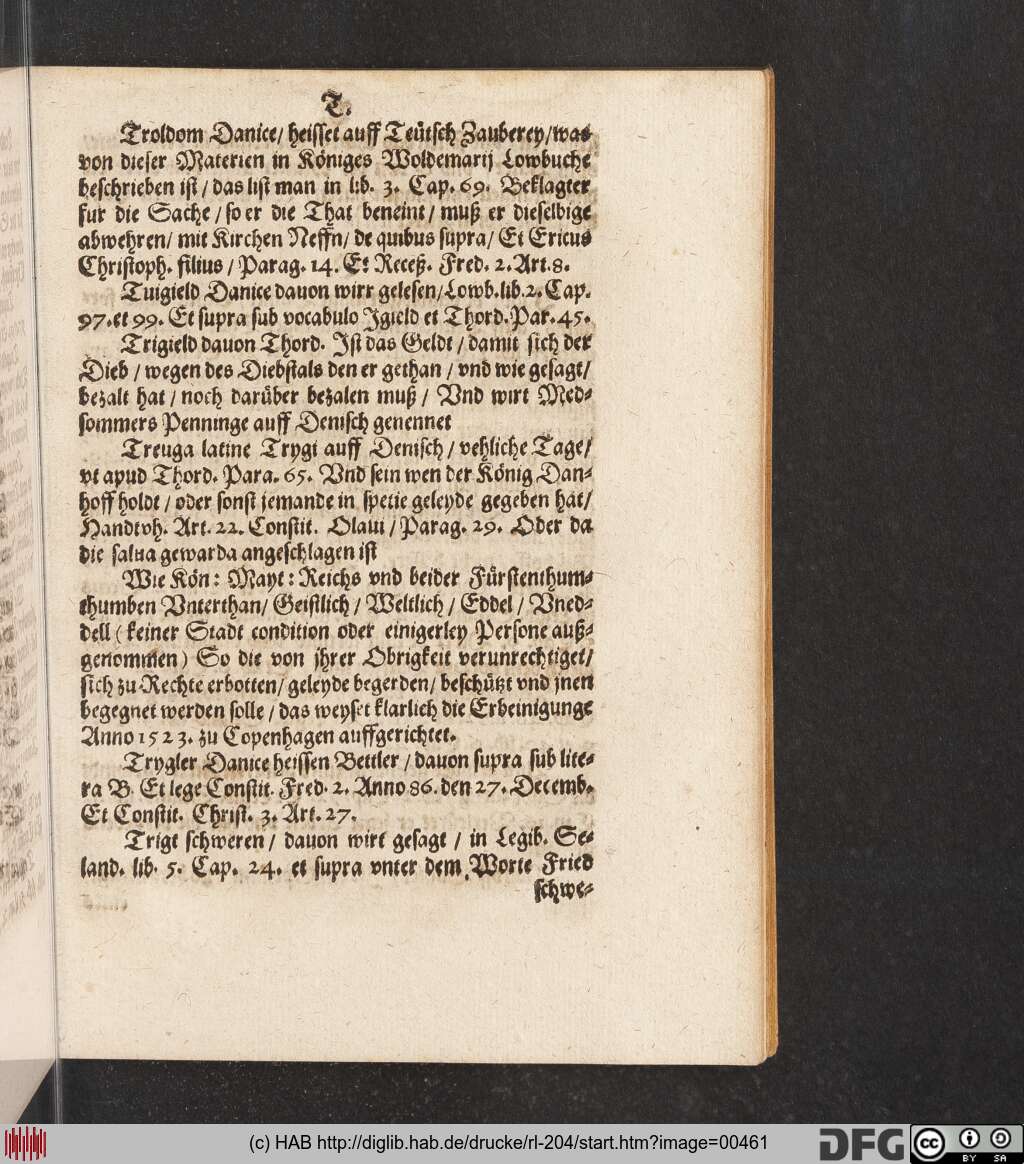 T.
Troldom Danice/ heisset auff Teütsch Zauberey/ was
von dieser Materien in Königes Woldemarij Lowbuche
beschrieben ist / das list man in lib. 3. Cap. 69. Beklagter
fur die Sache / so er die That beneint / muß er dieselbige
abwehren/ mit Kirchen Neffn/ de quibus supra/ Et Ericus
Christoph. filius / Parag. 14. Et Receß. Fred. 2. Art. 8.
Tuigield Danice dauon wirt gelesen/ Lowb. lib. 2. Cap.
97. et 99. Et supra sub vocabulo Igield et Thord. Par. 45.
Trigield dauon Thord. Ist das Geldt / damit sich der
Dieb / wegen des Diebstals den er gethan / vnd wie gesagt/
bezalt hat / noch darüber bezalen muß / Vnd wirt Med-
sommers Penninge auff Denisch genennet
Treuga latine Trygt auff Denisch / vehliche Tage/
vt apud Thord. Para. 65. Vnd sein wen der König Dan-
hoff holdt / oder sonst jemande in spetie geleyde gegeben hat/
Handtvh. Art. 22. Constit. Olaui / Parag. 29. Oder da
die salua gewarda angeschlagen ist
Wie Kön: Mayt: Reichs vnd beider Fürstenthum-
thumben Vnterthan/ Geistlich / Weltlich / Eddel / Vned-
dell ( keiner Stadt condition oder einigerley Persone auß-
genommen ) So die von jhrer Obrigkeit verunrechtiget/
sich zu Rechte erbotten/ geleyde begerden/ beschützt vnd jnen
begegnet werden solle / das weyset klarlich die Erbeinigunge
Anno 1523. zu Copenhagen auffgerichtet.
Trygler Danice heissen Bettler / dauon supra sub lite-
ra B. Et lege Constit. Fred. 2. Anno 86. den 27. Decemb.
Et Constit. Christ. 3. Art. 27.
Trigt schweren / dauon wirt gesagt / in Legib. Se-
land. lib. 5. Cap. 24. et supra vnter dem Worte Fried
schwe-
(c) HAB http://diglib.hab.de/drucke/rl-204/start.htm?image=00461
DFG
cc BY SA